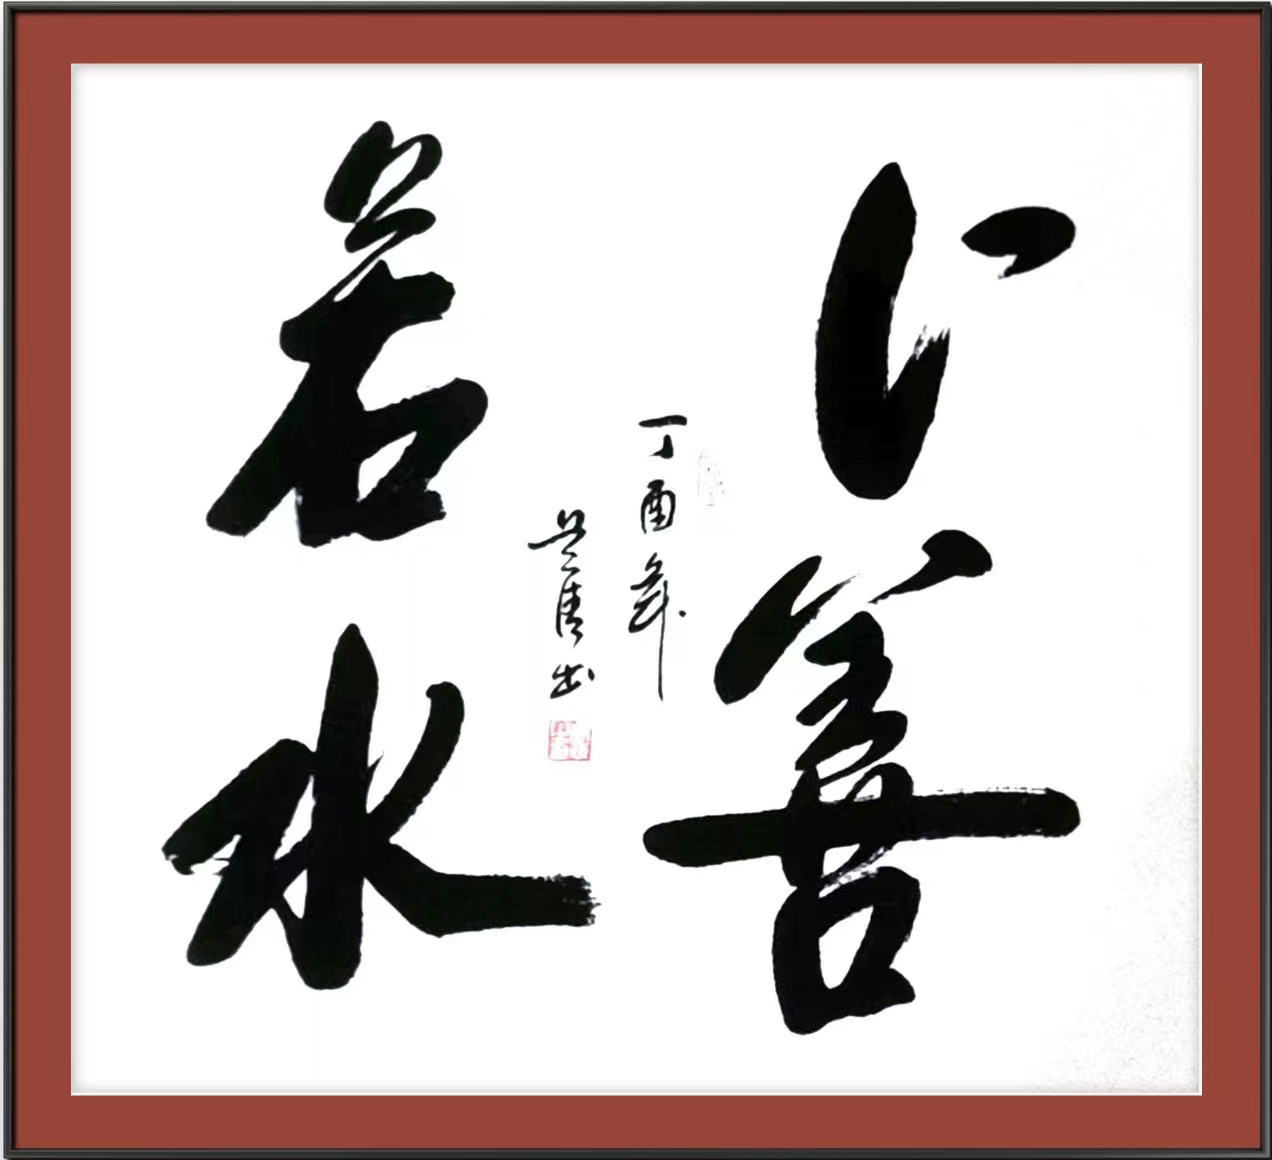 上善
若水
丁酉年